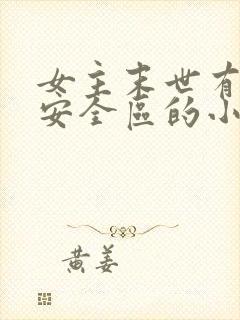 女主末世有
安全區的小
黄姜